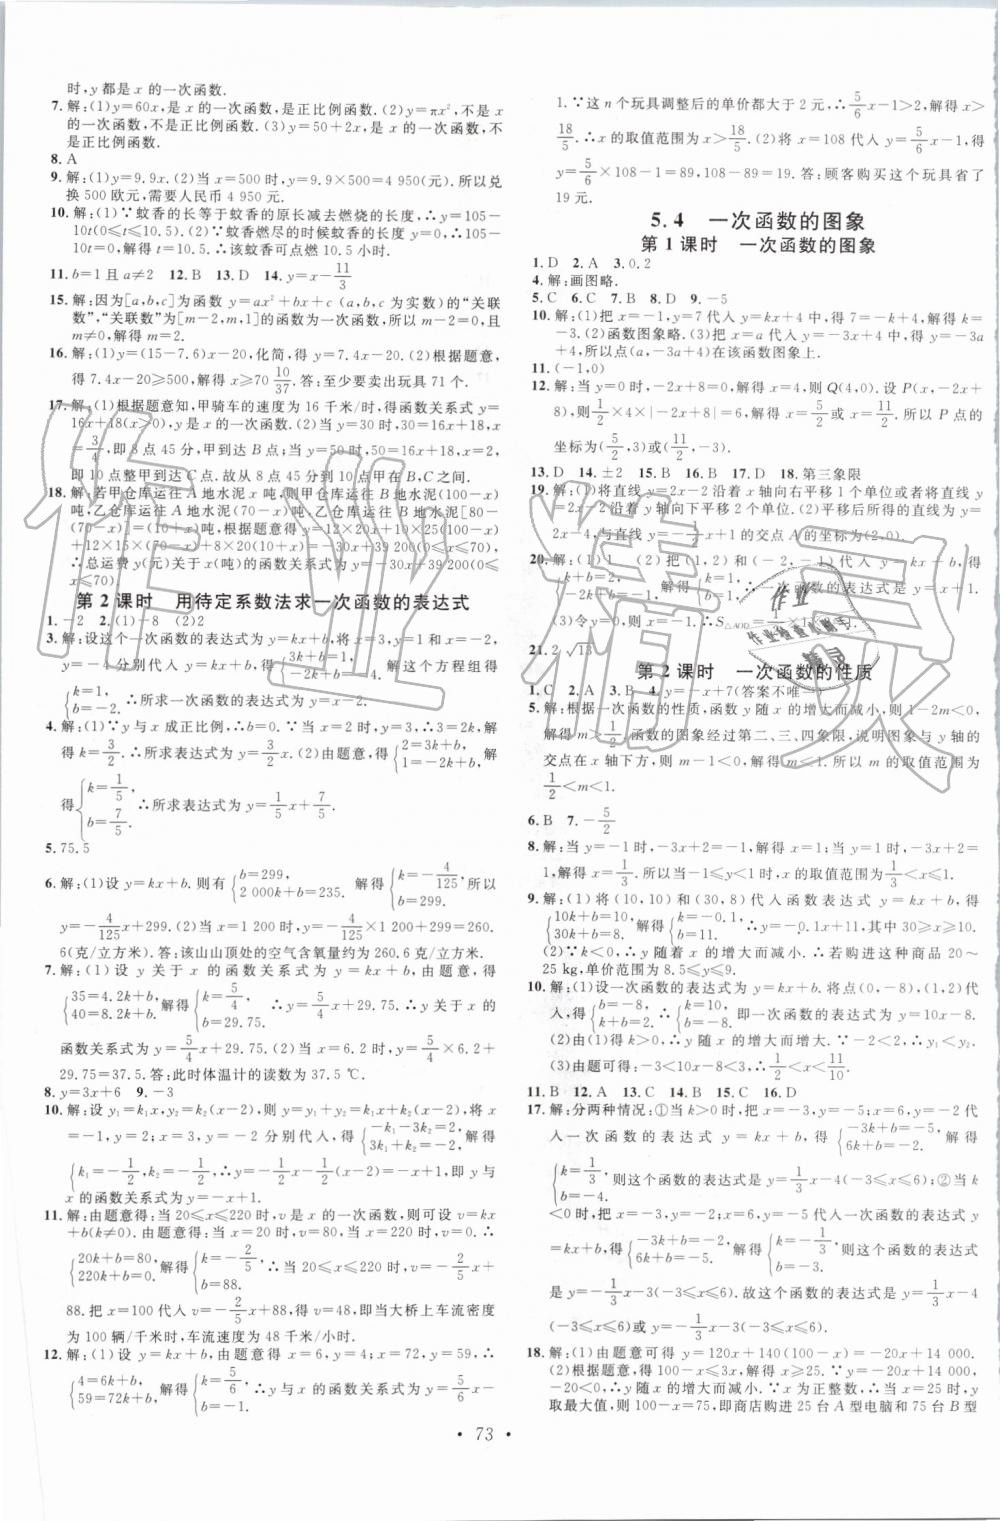 时,y 都是 x 的一次函数.
7.解:(1)y=60x,是一次函数,是正比例函数.(2)y=πx²,不是一次函数,不是正比例函数.(3)y=50+2x,是一次函数,不是正比例函数.
8.A
9.解:(1)y=9.9x.(2)当 x=500 时,y=9.9×500=4 950(元).所以兑
换 500 欧元,需要人民币 4 950 元.
10.解:(1)∵蚊香的长等于蚊香的原长减去燃烧的长度,∴y=105-
10t(0≤t≤10.5).(2)∵蚊香燃尽的时候蚊香的长度 y=0,∴105-
10t=0,解得 t=10.5,∴该蚊香可点燃 10.5 小时.
11.b=1且 a≠2 12.B 13.D 14.y=x-11/3
15.解:因为[a,b,c]为函数 y=ax²+bx+c(a,b,c 为实数)的“关联
数”,“关联数”为[m-2,m,1]的函数为一次函数,所以 m-2=0,m≠0,解得 m=2.
16.解:(1)y=(15-7.6)x-20,化简,得 y=7.4x-20.(2)根据题意,
得 7.4x-20≥500,解得 x≥70 10/37.答:至少要卖出玩具 71 个.
17.解:(1)根据题意知,甲骑车的速度为 16 千米/时,得函数关系式 y=
16x+18(x>0).(2)当 y=30 时,30=16x+18,解得 x=
3/4,即 8 点 45 分,甲到达 B 点;当 y=50 时,50=16x+18,解得 x=2,
即 10 点整甲到达 C 点.故从 8 点 45 分到 10 点甲在 B,C 之间.
18.解:若甲仓库运往 A 地水泥 x 吨,则甲仓库运往 B 地水泥(100-x)
吨,乙仓库运往 A 地水泥(70-x)吨,乙仓库运往 B 地水泥[80-
(70-x)]=(10+x)吨,根据题意得 y=12×20x+10×25(100-x)
+12×15×(70-x)+8×20×(10+x)=-30x+39 200(0≤x≤70).
∴总运费 y(元)关于 x(吨)的函数关系式为 y=-30x+39 200(0
≤x≤70).
第 2 课时 用待定系数法求一次函数的表达式
1.-2 2.(1)-8 (2)2
3.解:设这个一次函数的表达式为 y=kx+b.将 x=3,y=1 和 x=-2,
y=-4 分别代入,得 {3k+b=1, -2k+b=-4. 解这个方程组得
{k=1, b=-2. ∴所求表达式为 y=x-2.
4.解:(1)∵y 与 x 成正比例,∴b=0.∵当 x=2 时,y=3,∴3=2k.
解得 k=3/2.∴所求表达式为 y=3/2x.(2)由题意,得 {2=3k+b, 1=-2k+b. 解
得 {k=1/5, b=7/5. ∴所求表达式为 y=1/5x+7/5.
5.75.5
6.解:(1)设 y=kx+b.则有 {b=299, 2 000k+b=235. 解得 {k=-4/125, b=299. 所以
y=-4/125x+299.(2)当 x=1 200 时,y=-4/125×1 200+299=260.
6(克/立方米).答:该山山顶处的空气含氧量约为 260.6 克/立方米.
7.解:(1)设 y 关于 x 的函数关系式为 y=kx+b,由题意,得
{35=4.2k+b, 40=8.2k+b, 解得 {k=5/4, b=29.75. ∴y=5/4x+29.75.∴y 关于 x 的
函数关系式为 y=5/4x+29.75.(2)当 x=6.2 时,y=5/4×6.2+
29.75=37.5.答:此时体温计的读数为 37.5 ℃.
8.y=3x+6 9.-3
10.解:设 y₁=k₁x,y₂=k₂(x-2),则 y=k₁x+k₂(x-2),将 x
=-1,y=2 和 x=2,y=-1 分别代入,得 {-k₁-3k₂=2, 2k₁=-1. 解得
{k₁=-1/2, k₂=-1/2. ∴y=-1/2x-1/2(x-2)=-x+1,即 y 与
x 的函数关系式为 y=-x+1.
11.解:由题意得:当 20≤x≤220 时,v 是 x 的一次函数,则可设 v=kx
+b(k≠0).由题意得:当 x=20 时,v=80,当 x=220 时,v=0,
∴{20k+b=80, 220k+b=0. 解得 {k=-2/5, b=88. ∴当 20≤x≤220 时,v=-2/5x+
88.把 x=100 代入 v=-2/5x+88,得 v=48,即当大桥上车流密度
为 100 辆/千米时,车流速度为 48 千米/小时.
12.解:(1)设 y=kx+b,由题意得 x=6,y=4;x=72,y=59,∴
{4=6k+b, 59=72k+b, 解得 {k=5/6, b=-1. ∴y 与 x 的函数关系式为 y=5/6x-
1.∵这 n 个玩具调整后的单价都大于 2 元,∴5/6x-1>2,解得 x>
18/5.∴x 的取值范围为 x>18/5.(2)将 x=108 代入 y=5/6x-1,得
y=5/6×108-1=89,108-89=19.答:顾客购买这个玩具省了
19 元.
5.4 一次函数的图象
第 1 课时 一次函数的图象
1.D 2.A 3.0,2
4.解:画图略.
5.C 6.C 7.B 8.D 9.-5
10.解:(1)把 x=-1,y=7 代入 y=kx+4 中,得 7=-k+4,解得 k=
-3.(2)函数图象略.(3)把 x=a 代入 y=-3x+4 中,得 y=-3a
+4,所以点(a,-3a+4)在该函数图象上.
11.(-1,0)
12.解:当 y=0 时,-2x+8=0,解得 x=4,则 Q(4,0).设 P(x,-2x+
8),则 1/2×4×|-2x+8|=6,解得 x=5/2 或 x=11/2.所以 P 点的
坐标为(5/2,3)或(11/2,-3).
13.D 14.±2 15.B 16.B 17.D 18.第三象限
19.解:(1)将直线 y=2x-2 沿着 x 轴向右平移 1 个单位或者将直线
y=2x-2 沿着 y 轴向下平移 2 个单位.(2)平移后所得的函数为
y=2x-4,与直线 y=-1/2x+1 的交点 A 的坐标为(2,0).
20.解:(1)1 (2)把(1,2)和(-2,-1)代入 y=kx+b,得
.
(3)令 y=0,得 x=-1.∴S△AOD=1/2×1×
21.2 √13
第 2 课时 一次函数的性质
1.C 2.A 3.B 4.y=-x+7(答案不唯一)
5.解:根据一次函数的性质,函数 y 随 x 的增大而减小,则 1-2m<0,
解得 m>1/2.函数的图象经过第二、三、四象限,说明图象与 y 轴的
交点在 x 轴下方,即 m-1<0,解得 m<1.所以 m 的取值范围为
1/2<m<1.
6.B 7.-5/2
8.解:当 y=-1 时,-3x+2=-1,解得 x=1;当 y=1 时,-3x+2=
1,解得 x=1/3.当-1≤y<1 时,x 的取值范围为 1/3<x≤1.
9.解:(1)将(10,10)和(30,8)代入函数表达式 y=kx+b,得
{10k+b=10, 30k+b=8. 解得 {k=-0.1, b=11. ∴y=-0.1x+11,其中 30≥x≥10.
(2)∵k<0,∴y 随着 x 的增大而减小.∴若购进这种商品 20~
25 kg,单价范围为 8.5≤y≤9.
10.解:(1)设一次函数的表达式为 y=kx+b.将点(0,-8),(1,2)代
入,得 {b=-8, k+b=2. ∴{k=10, b=-8. 即一次函数的表达式为 y=10x-8.
(2)由(1)得 k>0,∴y 随 x 的增大而增大.∵-2<2,∴y₁<y₂.
(3)由题可得-3<10x-8<3,解得 1/2<x<11/10.
11.B 12.A 13.C 14.B 15.C 16.D
17.解:分两种情况:①当 k>0 时,把 x=-3,y=-5;x=6,y=-2 代
入一次函数的表达式 y=kx+b,得 {-3k+b=-5, 6k+b=-2. 解得
{k=1/3, b=-4. 则这个函数的表达式是 y=1/3x-4(-3≤x≤6);②当 k
<0 时,把 x=-3,y=-2;x=6,y=-5 代入一次函数的表达式 y=
kx+b,得 {-3k+b=-2, 6k+b=-5. 解得 {k=-1/3, b=-3, 则这个函数的表达式
是 y=-1/3x-3(-3≤x≤6).故这个函数的表达式是 y=1/3x-4
(-3≤x≤6)或 y=-1/3x-3(-3≤x≤6).
18.解:(1)由题意可得 y=120x+140(100-x)=-20x+14 000.
(2)根据题意,得 100-x≤3x,解得 x≥25.∵y=-20x+14 000,
-20<0,∴y 随 x 的增大而减小.∵x 为正整数,∴当 x=25 时,y
取最大值,则 100-x=75,即商店购进 25 台 A 型电脑和 75 台 B 型
· 73 ·
作业精灵